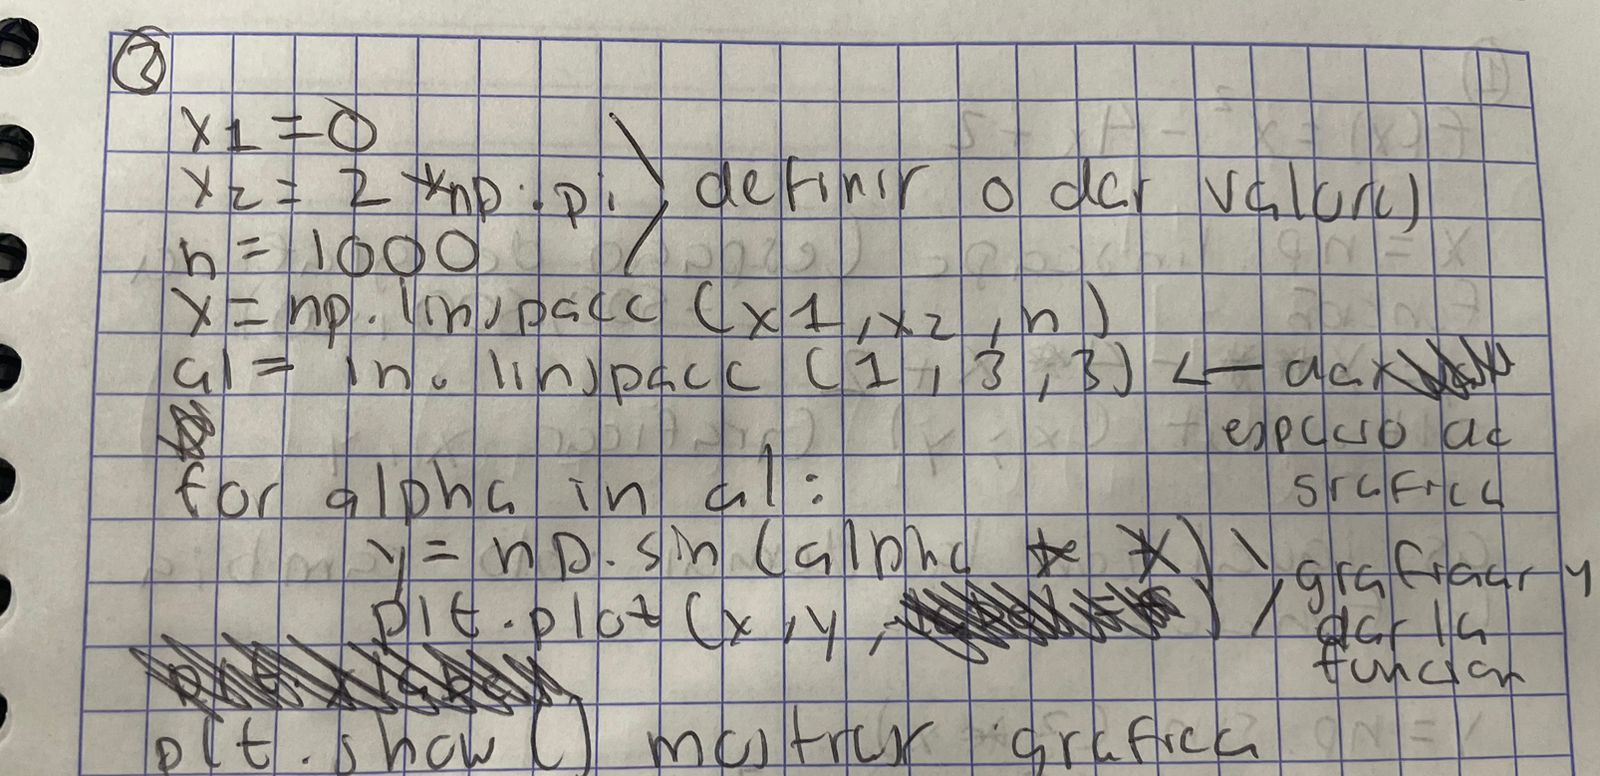 3
x1 = 0
x2 = 2 * np.pi } definir o dar valores
n = 1000
x = np.linspace (x1, x2, n)
al = ln. linspace (1, 3, 3) <— dar
espacio de
grafica
for alpha in al:
y = np.sin (alpha * x)
plt.plot (x, y, )
graficar y
dar la
funcion
plt.show () mostrar grafica